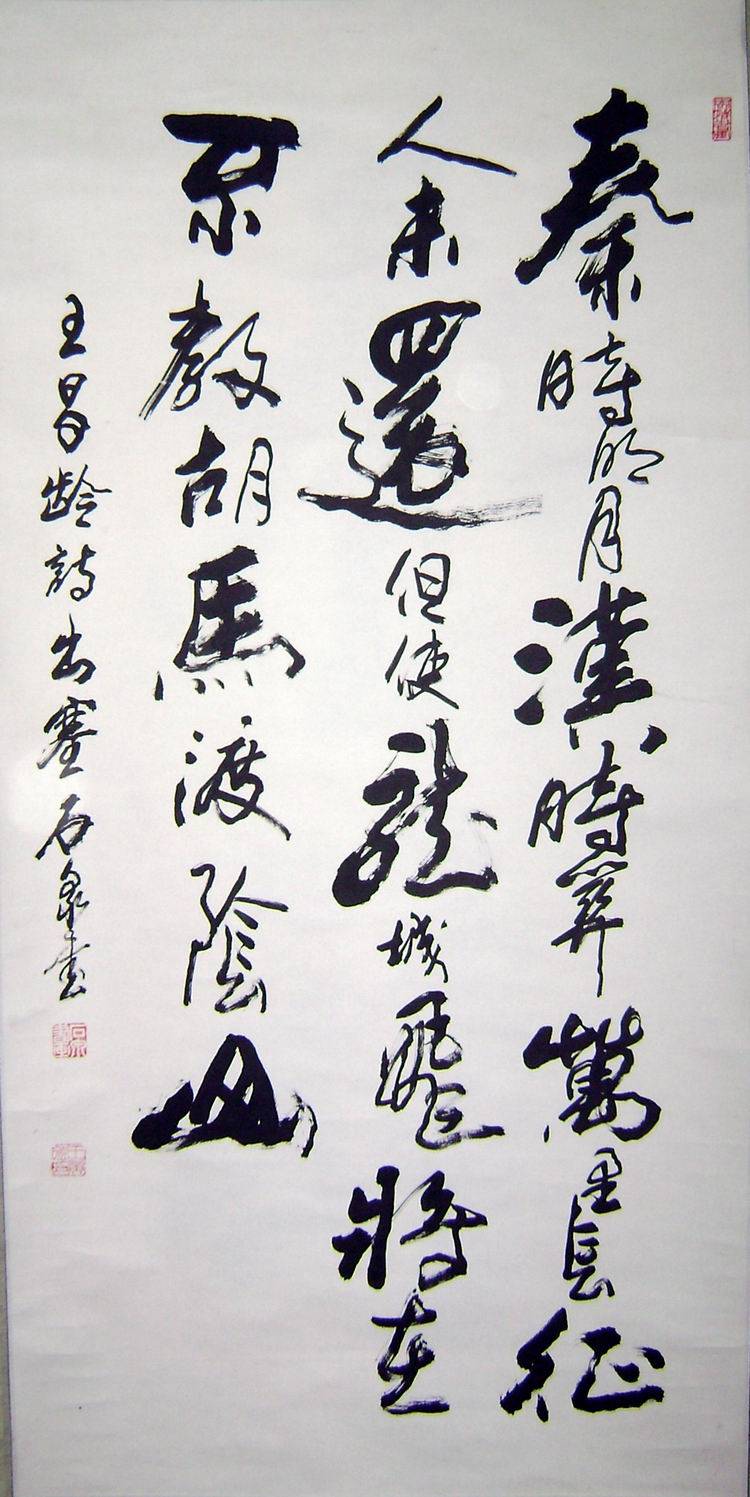 秦時明月漢時關萬里長征
人未還但使龍城飛將在
不教胡馬渡陰山
王昌齡詩出塞石泉書